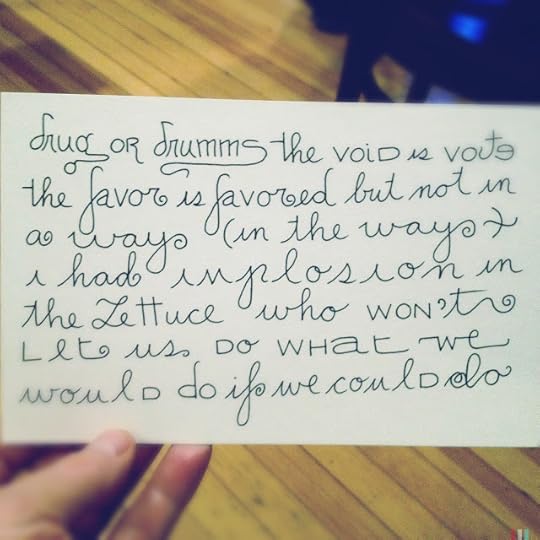 drug or drumms the void is voute
the favor is favored but not in
a ways (in the ways)
i had implosion in
the Lettuce who won't
Let us do what we
would do if we could do